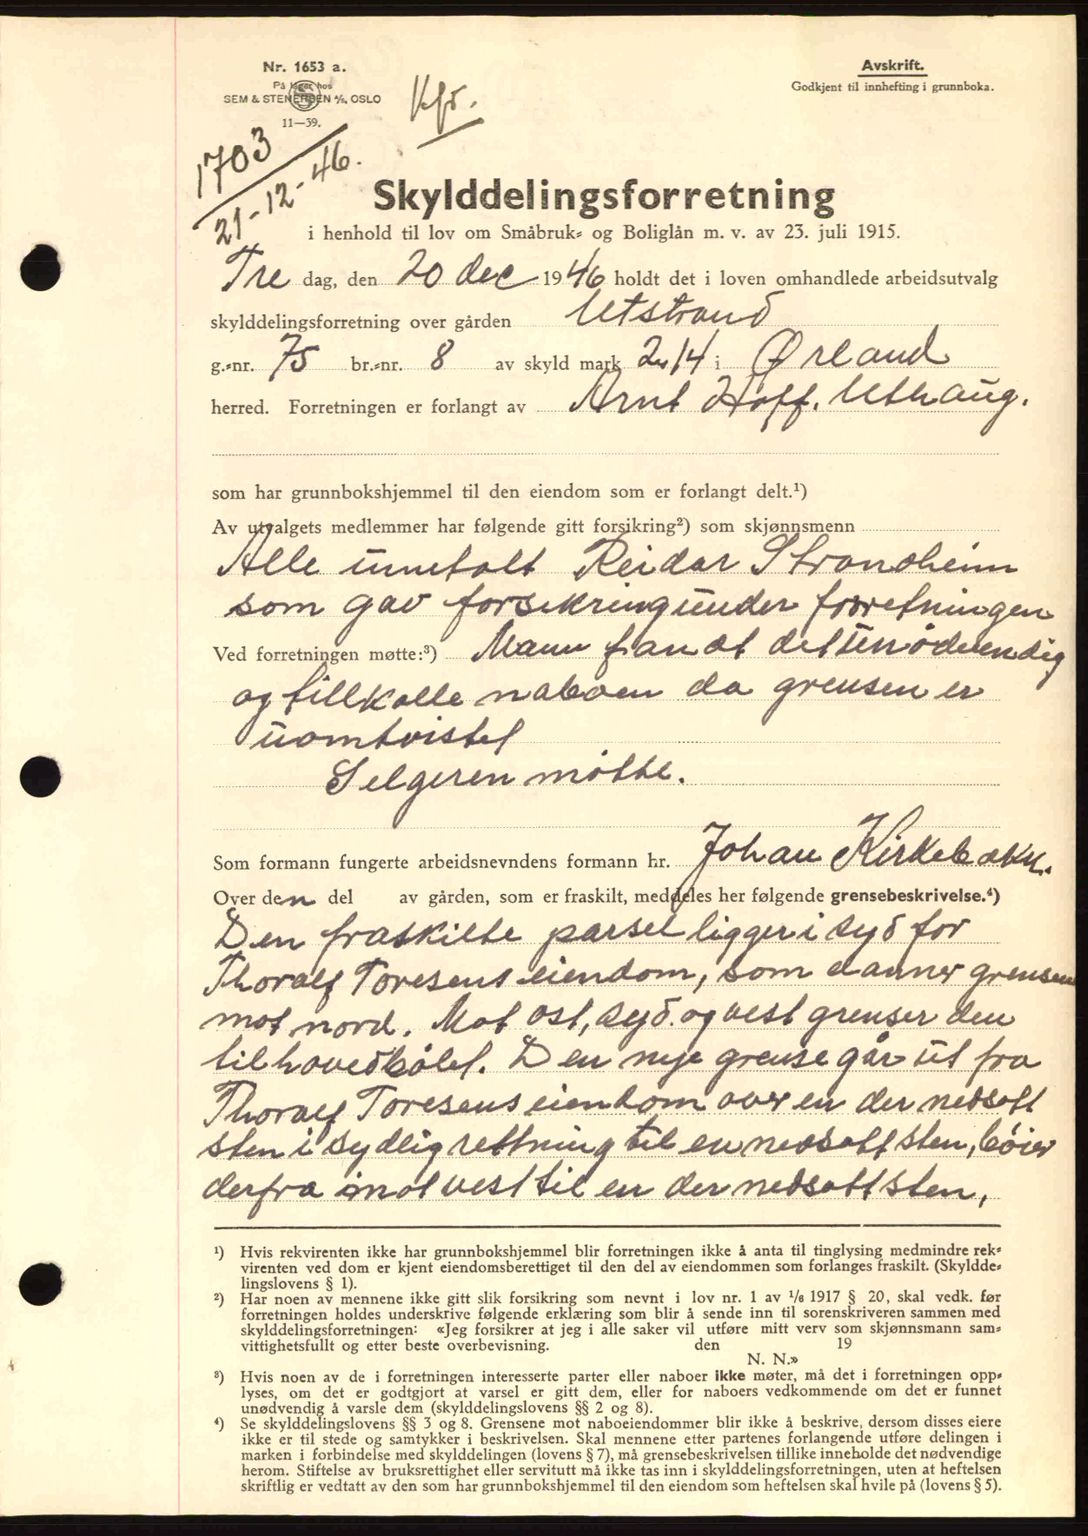 Nr. 1653 a.
På lager hos
SEM & STENERSEN A/S, OSLO
11—39.
Avskrift.
Godkjent til innhefting i grunnboka.
Kfr.
1703
21-12-46.
Skylddelingsforretning
i henhold til lov om Småbruk- og Boliglån m. v. av 23. juli 1915.
Fre dag, den 20 dec 1946 holdt det i loven omhandlede arbeidsutvalg
skylddelingsforretning over gården Utstrand
g.-nr. 75 br.-nr. 8 av skyld mark 2.14 i Ørland
herred. Forretningen er forlangt av Arnt Hoff. Uthaug.
som har grunnbokshjemmel til den eiendom som er forlangt delt.¹)
Av utvalgets medlemmer har følgende gitt forsikring²) som skjønnsmenn
Alle unntatt Reidar Strandheim
som gav forsikring under forretningen
Ved forretningen møtte:³) Mann fandt det unødvendig
og tillkalle naboen da grensen er
uomtvistet
Selgeren møtte.
Som formann fungerte arbeidsnevndens formann hr. Johan Kirkebakk.
Over den del av gården, som er fraskilt, meddeles her følgende grensebeskrivelse.⁴)
Den fraskilte parsel ligger i syd for
Thoralf Toresens eiendom, som danner grensen
mot nord. Mot ost, syd. og vest grenser den
til hovedbølet. Den nye grense går ut fra
Thoralf Toresens eiendom over en der nedsatt
sten i sydlig rettning til en nedsatt sten, bøier
derfra imot vest til en der nedsatt sten,
¹) Hvis rekvirenten ikke har grunnbokshjemmel blir forretningen ikke å anta til tinglysing medmindre rek-
virenten ved dom er kjent eiendomsberettiget til den del av eiendommen som forlanges fraskilt. (Skyldde-
lingslovens § 1).
²) Har noen av mennene ikke gitt slik forsikring som nevnt i lov nr. 1 av 1/6 1917 § 20, skal vedk. før
forretningen holdes underskrive følgende erklæring som blir å sende inn til sorenskriveren sammen med
skylddelingsforretningen: «Jeg forsikrer at jeg i alle saker vil utføre mitt verv som skjønnsmann sam-
vittighetsfullt og etter beste overbevisning. den 19
N. N.»
³) Hvis noen av de i forretningen interesserte parter eller naboer ikke møter, må det i forretningen opp-
lyses, om det er godtgjort at varsel er gitt dem, eller for naboers vedkommende om det er funnet
unødvendig å varsle dem (skylddelingslovens §§ 2 og 8).
⁴) Se skylddelingslovens §§ 3 og 8. Grensene mot naboeiendommer blir ikke å beskrive, dersom disses eiere
ikke er til stede og samtykker i beskrivelsen. Skal mennene etter partenes forlangende utføre delingen i
marken i forbindelse med skylddelingen (lovens § 7), må grensebeskrivelsen tillike inneholde det nødvendige
herom. Stiftelse av bruksrettighet eller servitutt må ikke tas inn i skylddelingsforretningen, uten at heftelsen
skriftlig er vedtatt av den som har grunnbokshjemmel til den eiendom som heftelsen skal hvile på (lovens § 5).